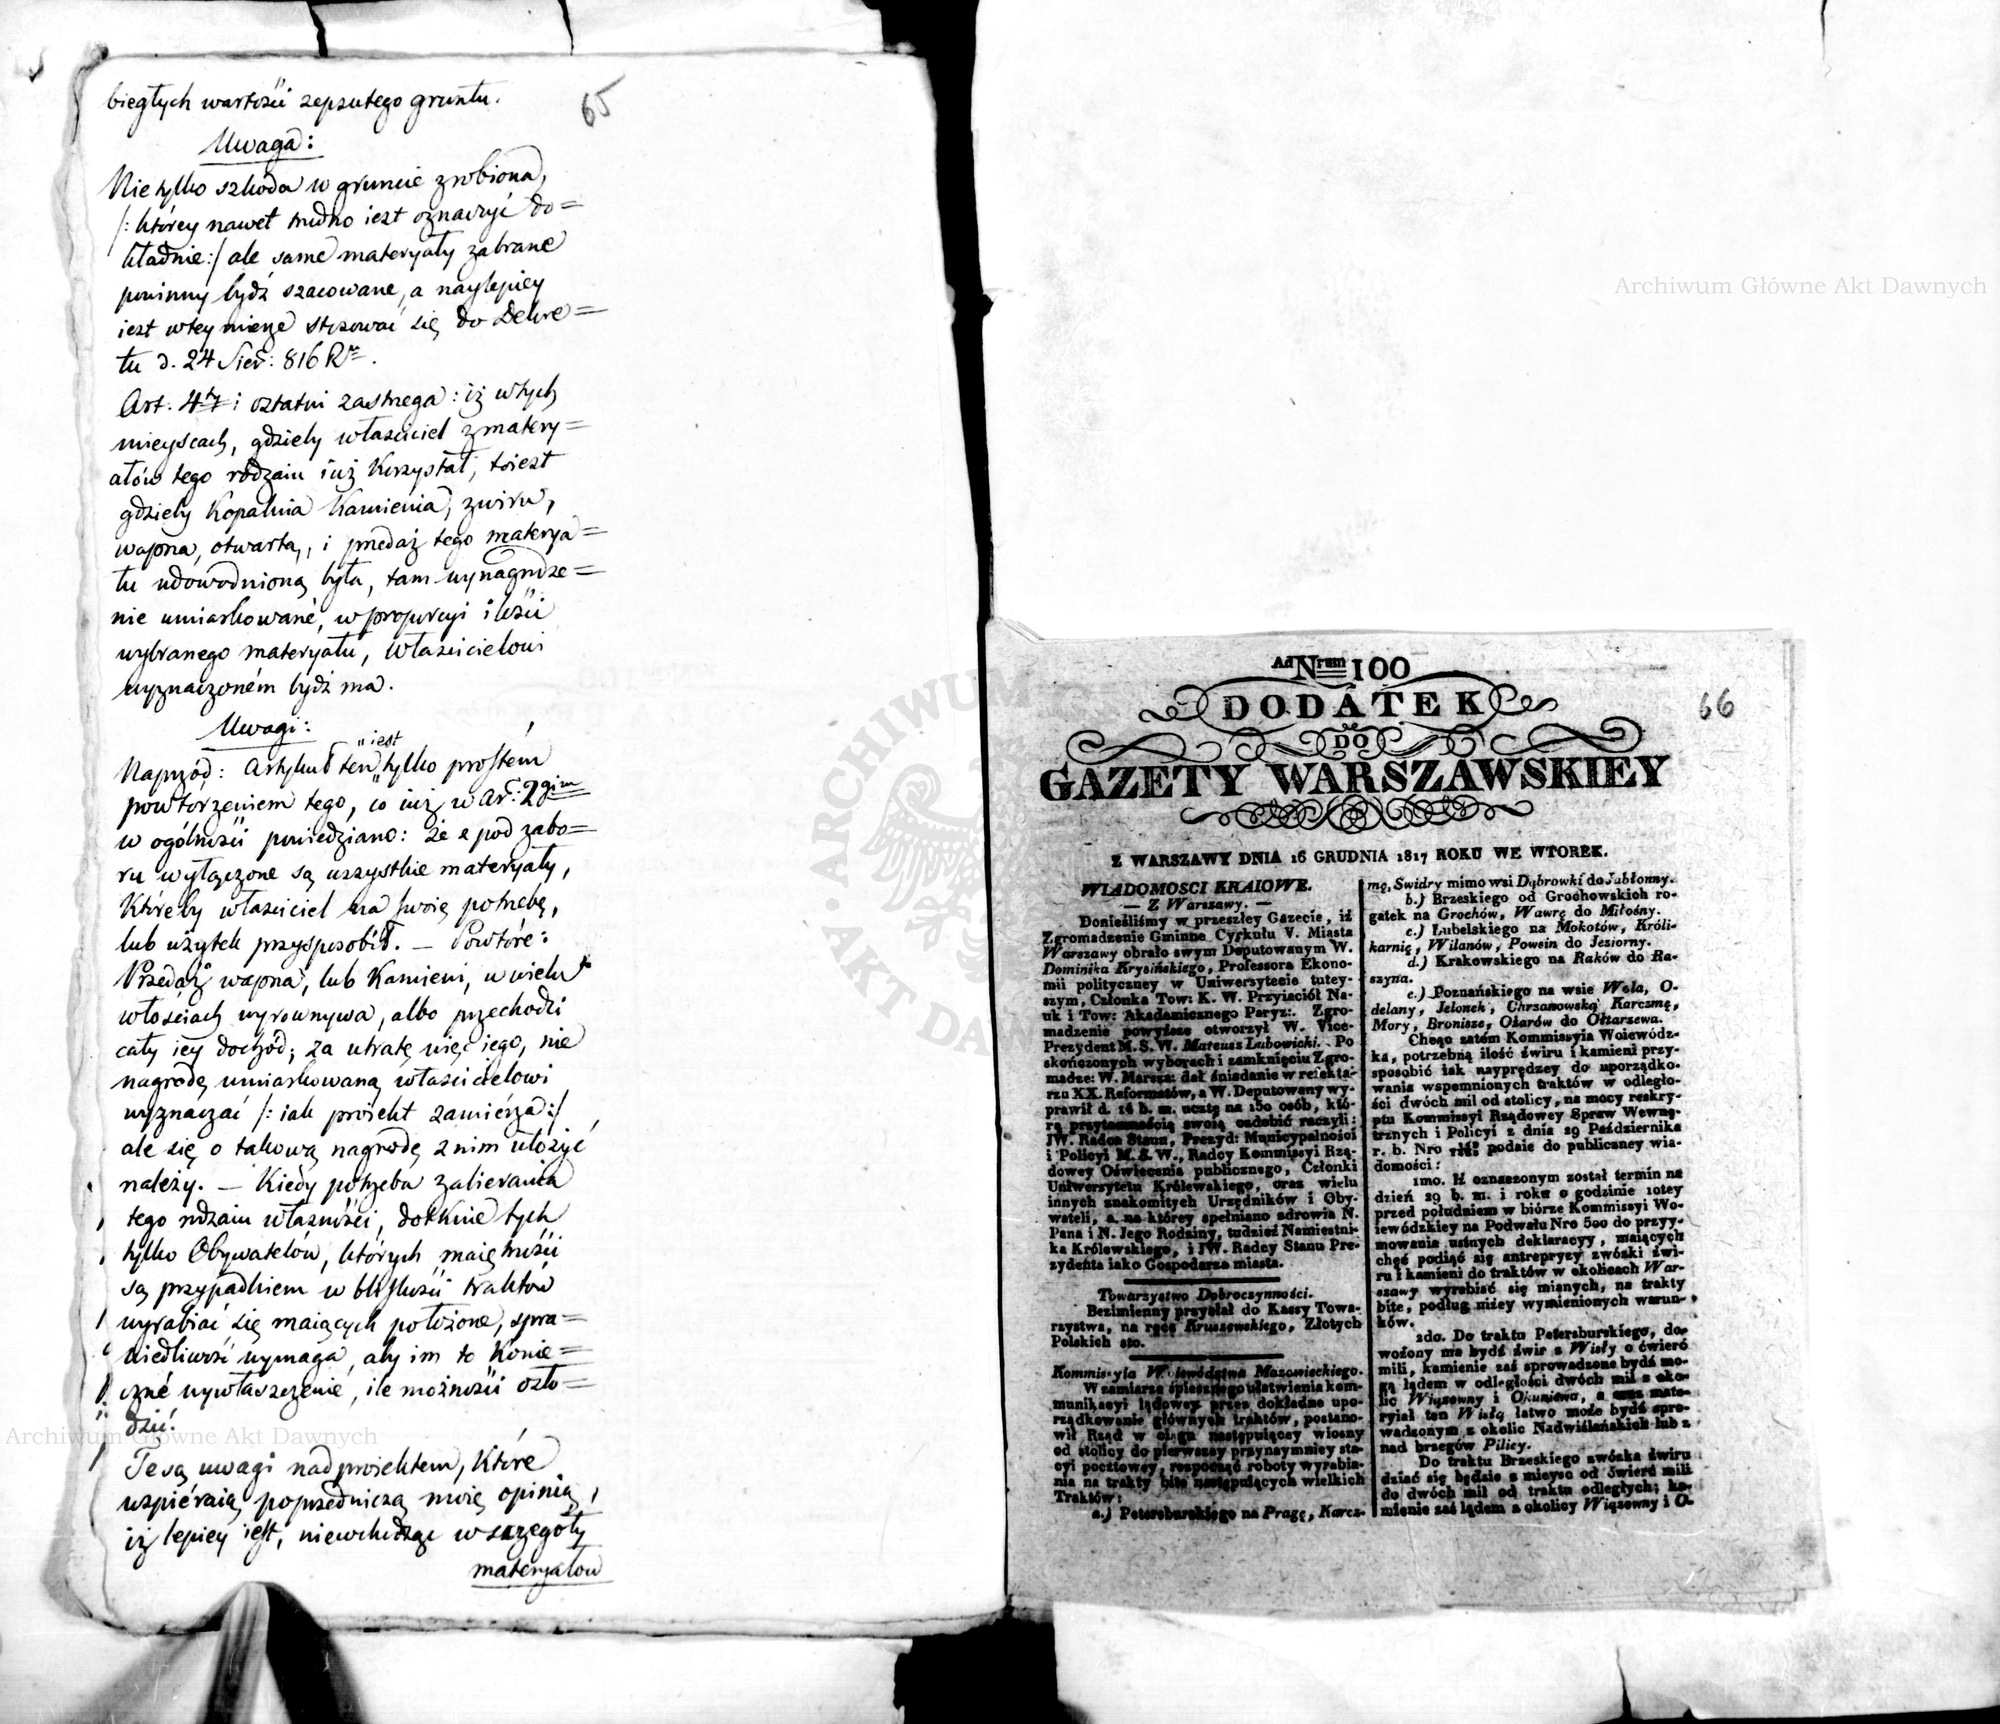 65
biegłych wartości zepsutego gruntu.
Uwaga:
Nie tylko szkoda w gruncie zrobiona,
/: którey nawet trudno iest oznaczyć do=
kładnie:/ ale same materyały zabrane
powinny bydź szacowane, a naylepiey
iest wtey mierze stosować się do Dekre=
tu d. 24 Sier: 816 R.
Art. 4ty i ostatni zastrzega: iż wtych
mieyscach, gdzieby właściciel z matery=
ałów tego rodzaiu iuż Korzystał, toiest
gdzieby Kopalnia Kamienia, zwiru,
wapna, otwartą, i przedaż tego materya=
łu udowodnioną była, tam wynagrodze=
nie umiarkowané, w proporcyi ilości
wybranego materyału, Właścicielowi
wyznaczoném bydź ma.
Uwagi:
Naprzód: Artykuł ten "iest" tylko prostém
powtórzeniem tego, co iuż w Art: 2gim
w ogólności powiedziano: że z pod zabo=
ru wyłączone są wszystkie materyały,
Któreby właściciel na swoię potrzebę,
lub użytek przysposobił. — Powtóre:
Przedaż wapna, lub Kamieni, w wielu
włościach wyrownywa, albo przechodzi
cały iey dochód; za utratę więc iego, nie
nagrodę umiarkowaną właścicielowi
wyznaczać /: iak proiekt zamiérza:/
ale się o takową nagrodę z nim ułożyć
należy. — Kiedy potrzeba zabierania
tego rodzaiu własności, dotknie tych
tylko Obywatelów, których maiętności
są przypadkiem w bliskości traktów
wyrabiać się maiących położone, spra=
wiedliwość wymaga, aby im to Konie=
czné wywłaszczenié, ile możności osło=
dzić.
Te są uwagi nad proiektem, Które
wspiéraią poprzedniczą moię opinią,
iż lepiey iest, niewchodząc w szczegóły
materyałow
66
Ad Nrum 100
DODATEK
DO
GAZETY WARSZAWSKIEY
Z WARSZAWY DNIA 16 GRUDNIA 1817 ROKU WE WTOREK.
WIADOMOSCI KRAIOWE.
— Z Warszawy. —
Donieśliśmy w przeszłey Gazecie, iż
Zgromadzenie Gminne Cyrkułu V. Miasta
Warszawy obrało swym Deputowanym W.
Dominika Krysińskiego, Professora Ekono-
mii polityczney w Uniwersytecie tutey-
szym, Członka Tow: K. W. Przyiaciół Na-
uk i Tow: Akademicznego Paryz:. Zgro-
madzenie powyższe otworzył W. Vice-
Prezydent M. S. W. Mateusz Lubowicki. Po
skończonych wyborach i zamknięciu Zgro-
madze: W. Marsza: dał śniadanie w refekta-
rzu XX. Reformatów, a W. Deputowany wy-
prawił d. 14 b. m. ucztę na 150 osób, któ-
rą przytomnością swoią ozdobić raczyli:
JW. Radca Stanu, Prezyd: Municypalności
i Policyi M. S. W., Radcy Kommissyi Rzą-
dowey Oświecenia publicznego, Członki
Uniwersytetu Królewskiego, oraz wielu
innych znakomitych Urzędników i Oby-
wateli, a na którey spełniano zdrowia N.
Pana i N. Jego Rodziny, tudzież Namiestni-
ka Królewskiego, i JW. Radcy Stanu Pre-
zydenta iako Gospodarza miasta.
Towarzystwo Dobroczynności.
Bezimienny przysłał do Kassy Towa-
rzystwa, na ręce Kruszewskiego, Złotych
Polskich sto.
Kommissyia Woiewództwa Mazowieckiego.
W zamiarze śpiesznego ułatwienia kom-
munikacyi lądowey przez dokładne upo-
rządkowanie głównych traktów, postano-
wił Rząd w ciągu następuiącey wiosny
od stolicy do pierwszey przynaymniey sta-
cyi pocztowey, rozpocząć roboty wyrabia-
nia na trakty bite następuiących wielkich
Traktów:
a.) Petersburskiego na Pragę, Karcz-
mę, Swidry mimo wsi Dąbrowki do Jabłonny.
b.) Brzeskiego od Grochowskich ro-
gatek na Grochów, Wawrę do Miłosny.
c.) Lubelskiego na Mokotów, Króli-
karnię, Wilanów, Powsin do Jeziorny.
d.) Krakowskiego na Raków do Ra-
szyna.
e.) Poznańskiego na wsie Wola, O-
delany, Jelonek, Chrzanowską Karczmę,
Mory, Bronisze, Ożarów do Ołtarzewa.
Chcąc zatém Kommissyia Woiewódz-
ka, potrzebną ilość żwiru i kamieni przy-
sposobić iak nayprędzey do uporządko-
wania wspomnionych traktów w odległo-
ści dwóch mil od stolicy, na mocy reskry-
ptu Kommissyi Rządowey Spraw Wewnę-
trznych i Policyi z dnia 29 Października
r. b. Nro podaie do publiczney wia-
domości:
1mo. Iż oznaczonym został termin na
dzień 29 b. m. i roku o godzinie 10tey
przed południem w biórze Kommissyi Wo-
iewódzkiey na Podwalu Nro 500 do przyy-
mowania ustnych deklaracyy, maiących
chęć podiąć się antrepryzy zwózki żwi-
ru i kamieni do traktów w okolicach War-
szawy wyrabiać się mianych, na trakty
bite, podług niżey wymienionych warun-
ków.
2do. Do traktu Petersburskiego, do-
wożony ma bydź żwir z Wisły o ćwierć
mili, kamienie zaś sprowadzone bydź mo-
gą lądem w odległości dwóch mil z oko-
lic Wiązowny i Okuniewa, a oraz mate-
ryiał ten Wisłą łatwo może bydź spro-
wadzonym z okolic Nadwiślańskich lub z
nad brzegów Pilicy.
Do traktu Brzeskiego zwózka żwiru
dziać się będzie z mieysc od ćwierć mili
do dwóch mil od traktu odległych; ka-
mienie zaś lądem z okolicy Wiązowny i O-
Archiwum Główne Akt Dawnych
Archiwum Główne Akt Dawnych